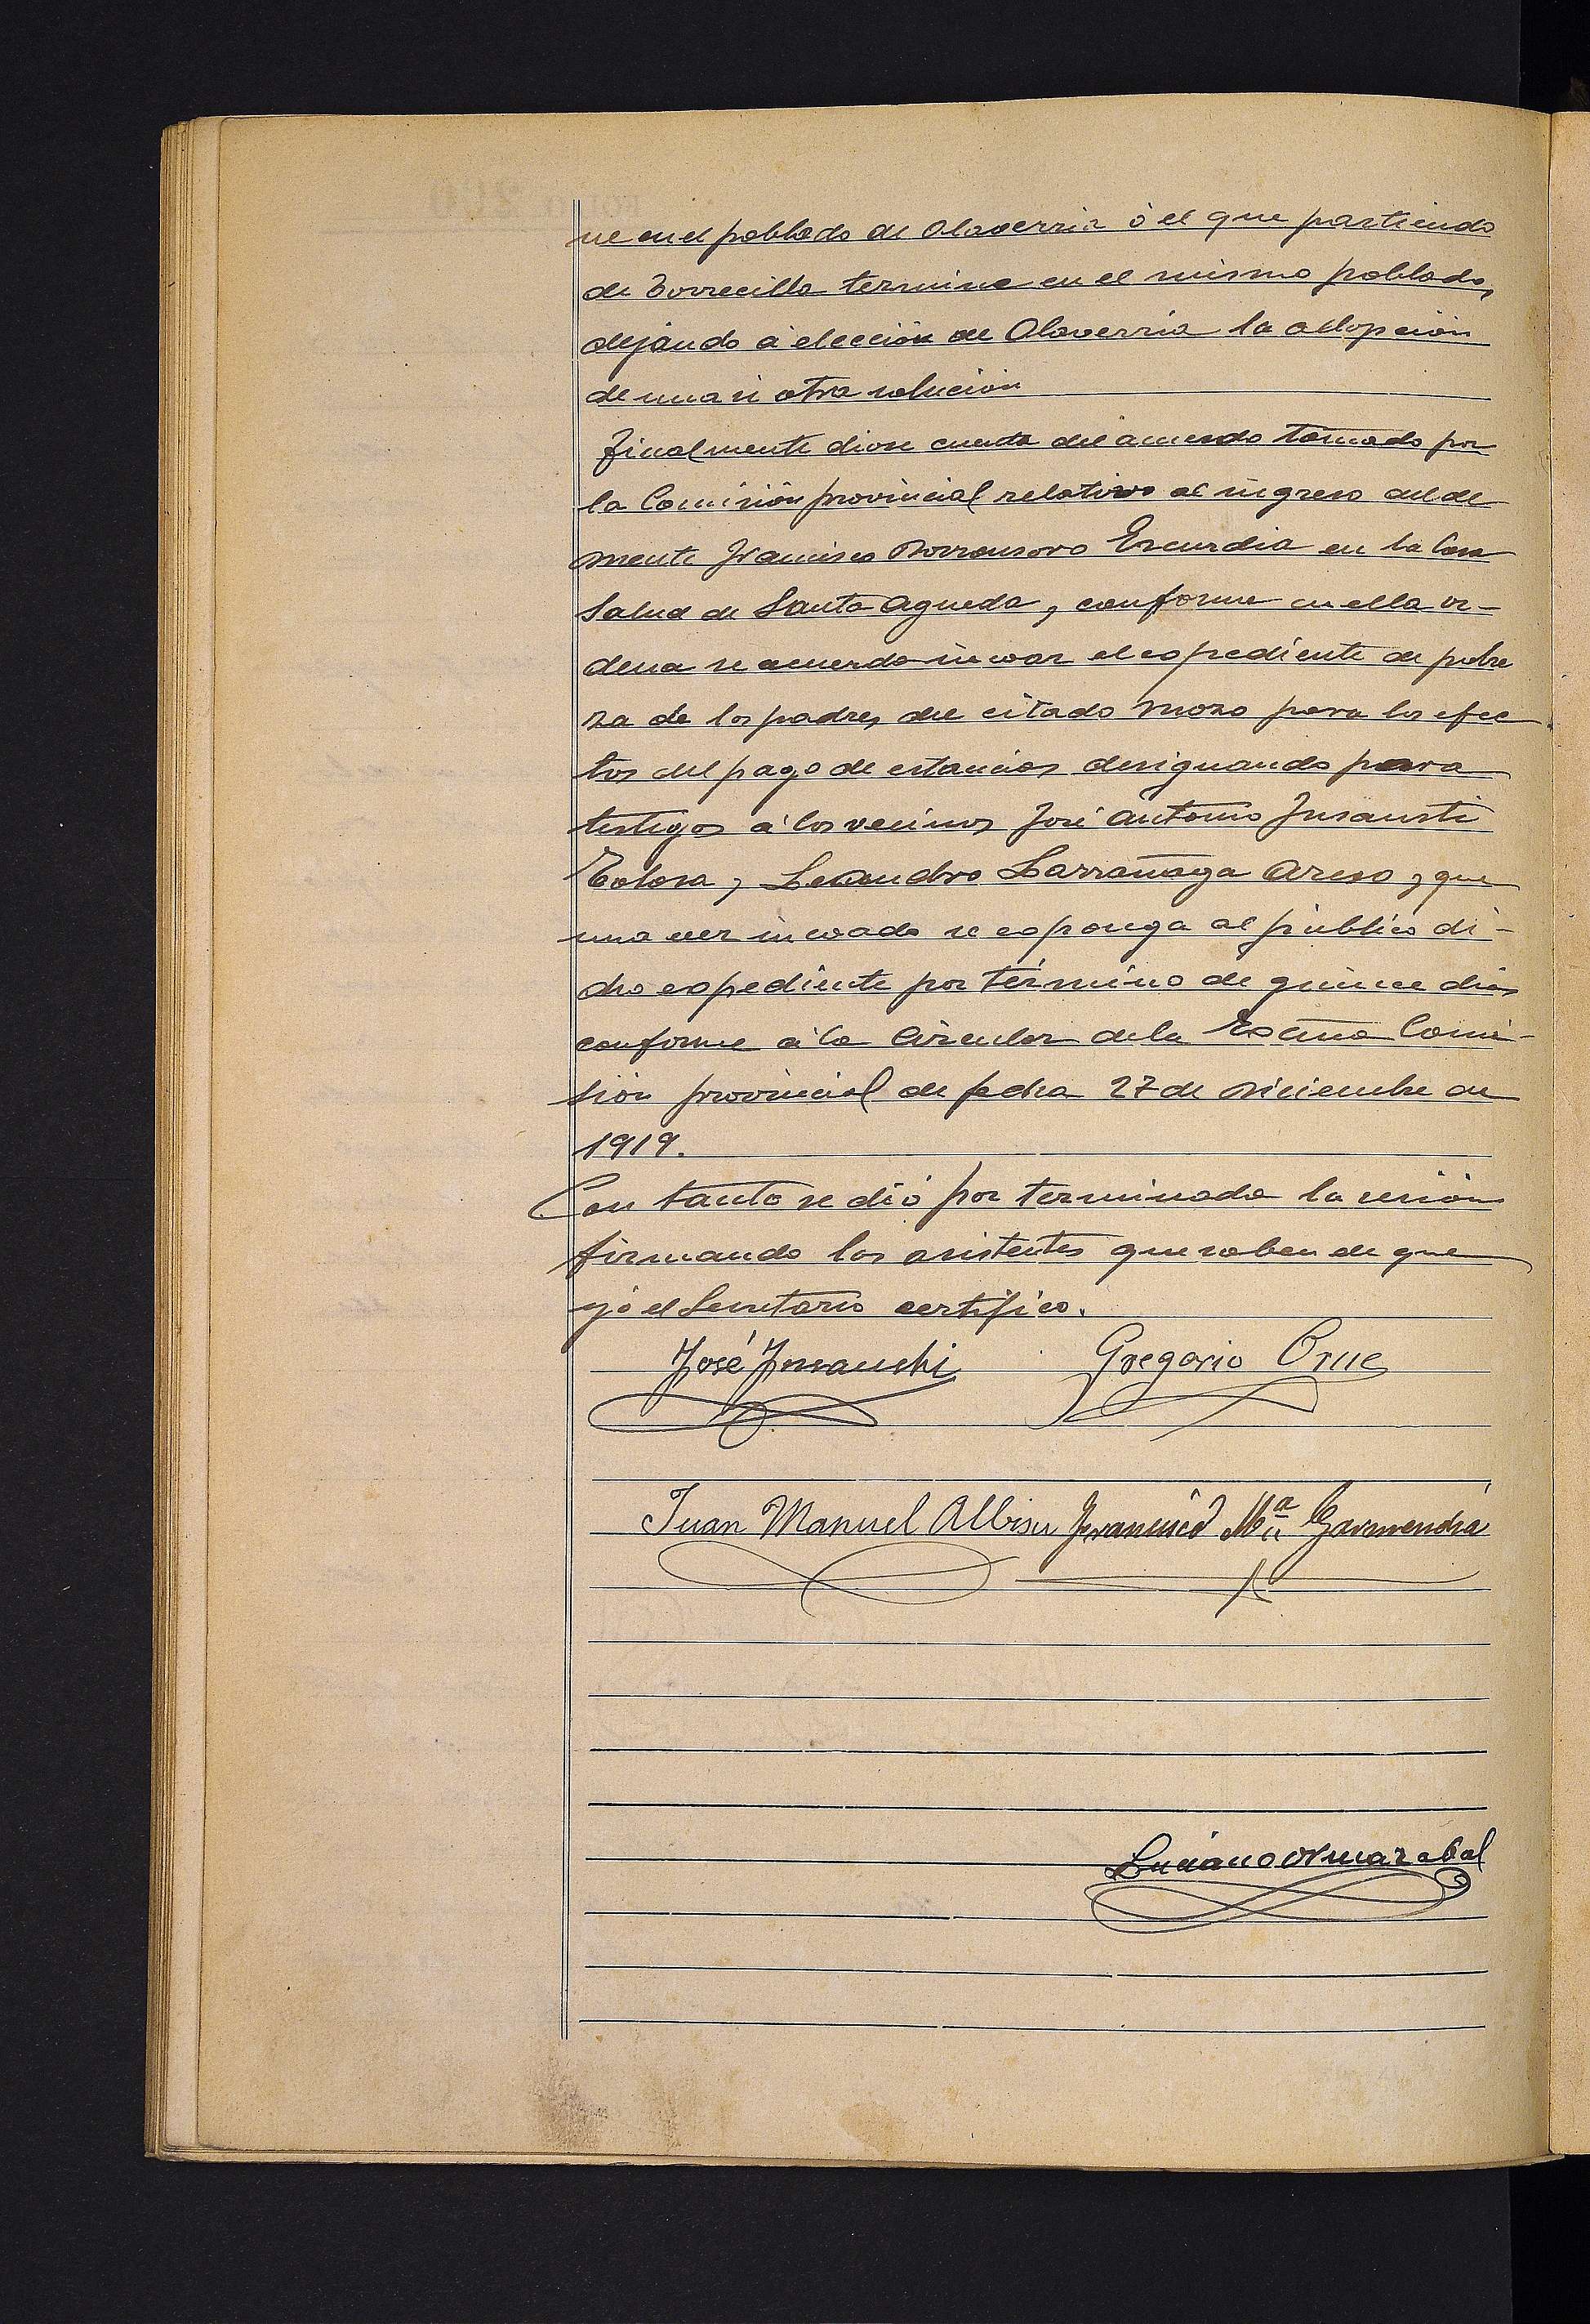 ne en el poblado de Olaverria ó el que partiendo
de Torrecilla termine en el mismo poblado,
dejando á elección de Olaverria la adopción
de una ú otra solución
Finalmente diose cuenta del acuerdo tomado por
la Comisión provincial relativo al ingreso del de
mente Francisco Dorronsoro Escurdia en la Casa
Salud de Santa Agueda, conforme en ella or-
dena se acuerda incoar el expediente de pobre
za de los padres del citado mozo para los efec
tos del pago de estancias designando para
testigos á los vecinos José Antonio Insausti
Tolosa, Leandro Larrañaga Areso y que
una vez incoado se exponga al público di-
cho expediente por término de quince dias
conforme á la Circular de la Excma Comi-
sión provincial de fecha 27 de Diciembre de
1919.
Con tanto se dió por terminada la sesión
firmando los asistentes que saben de que
yó el Secretario certifico.
José Insausti Gregorio Orue
Juan Manuel Albisu Francisco Mª Garmendia
Luciano Ormazabal